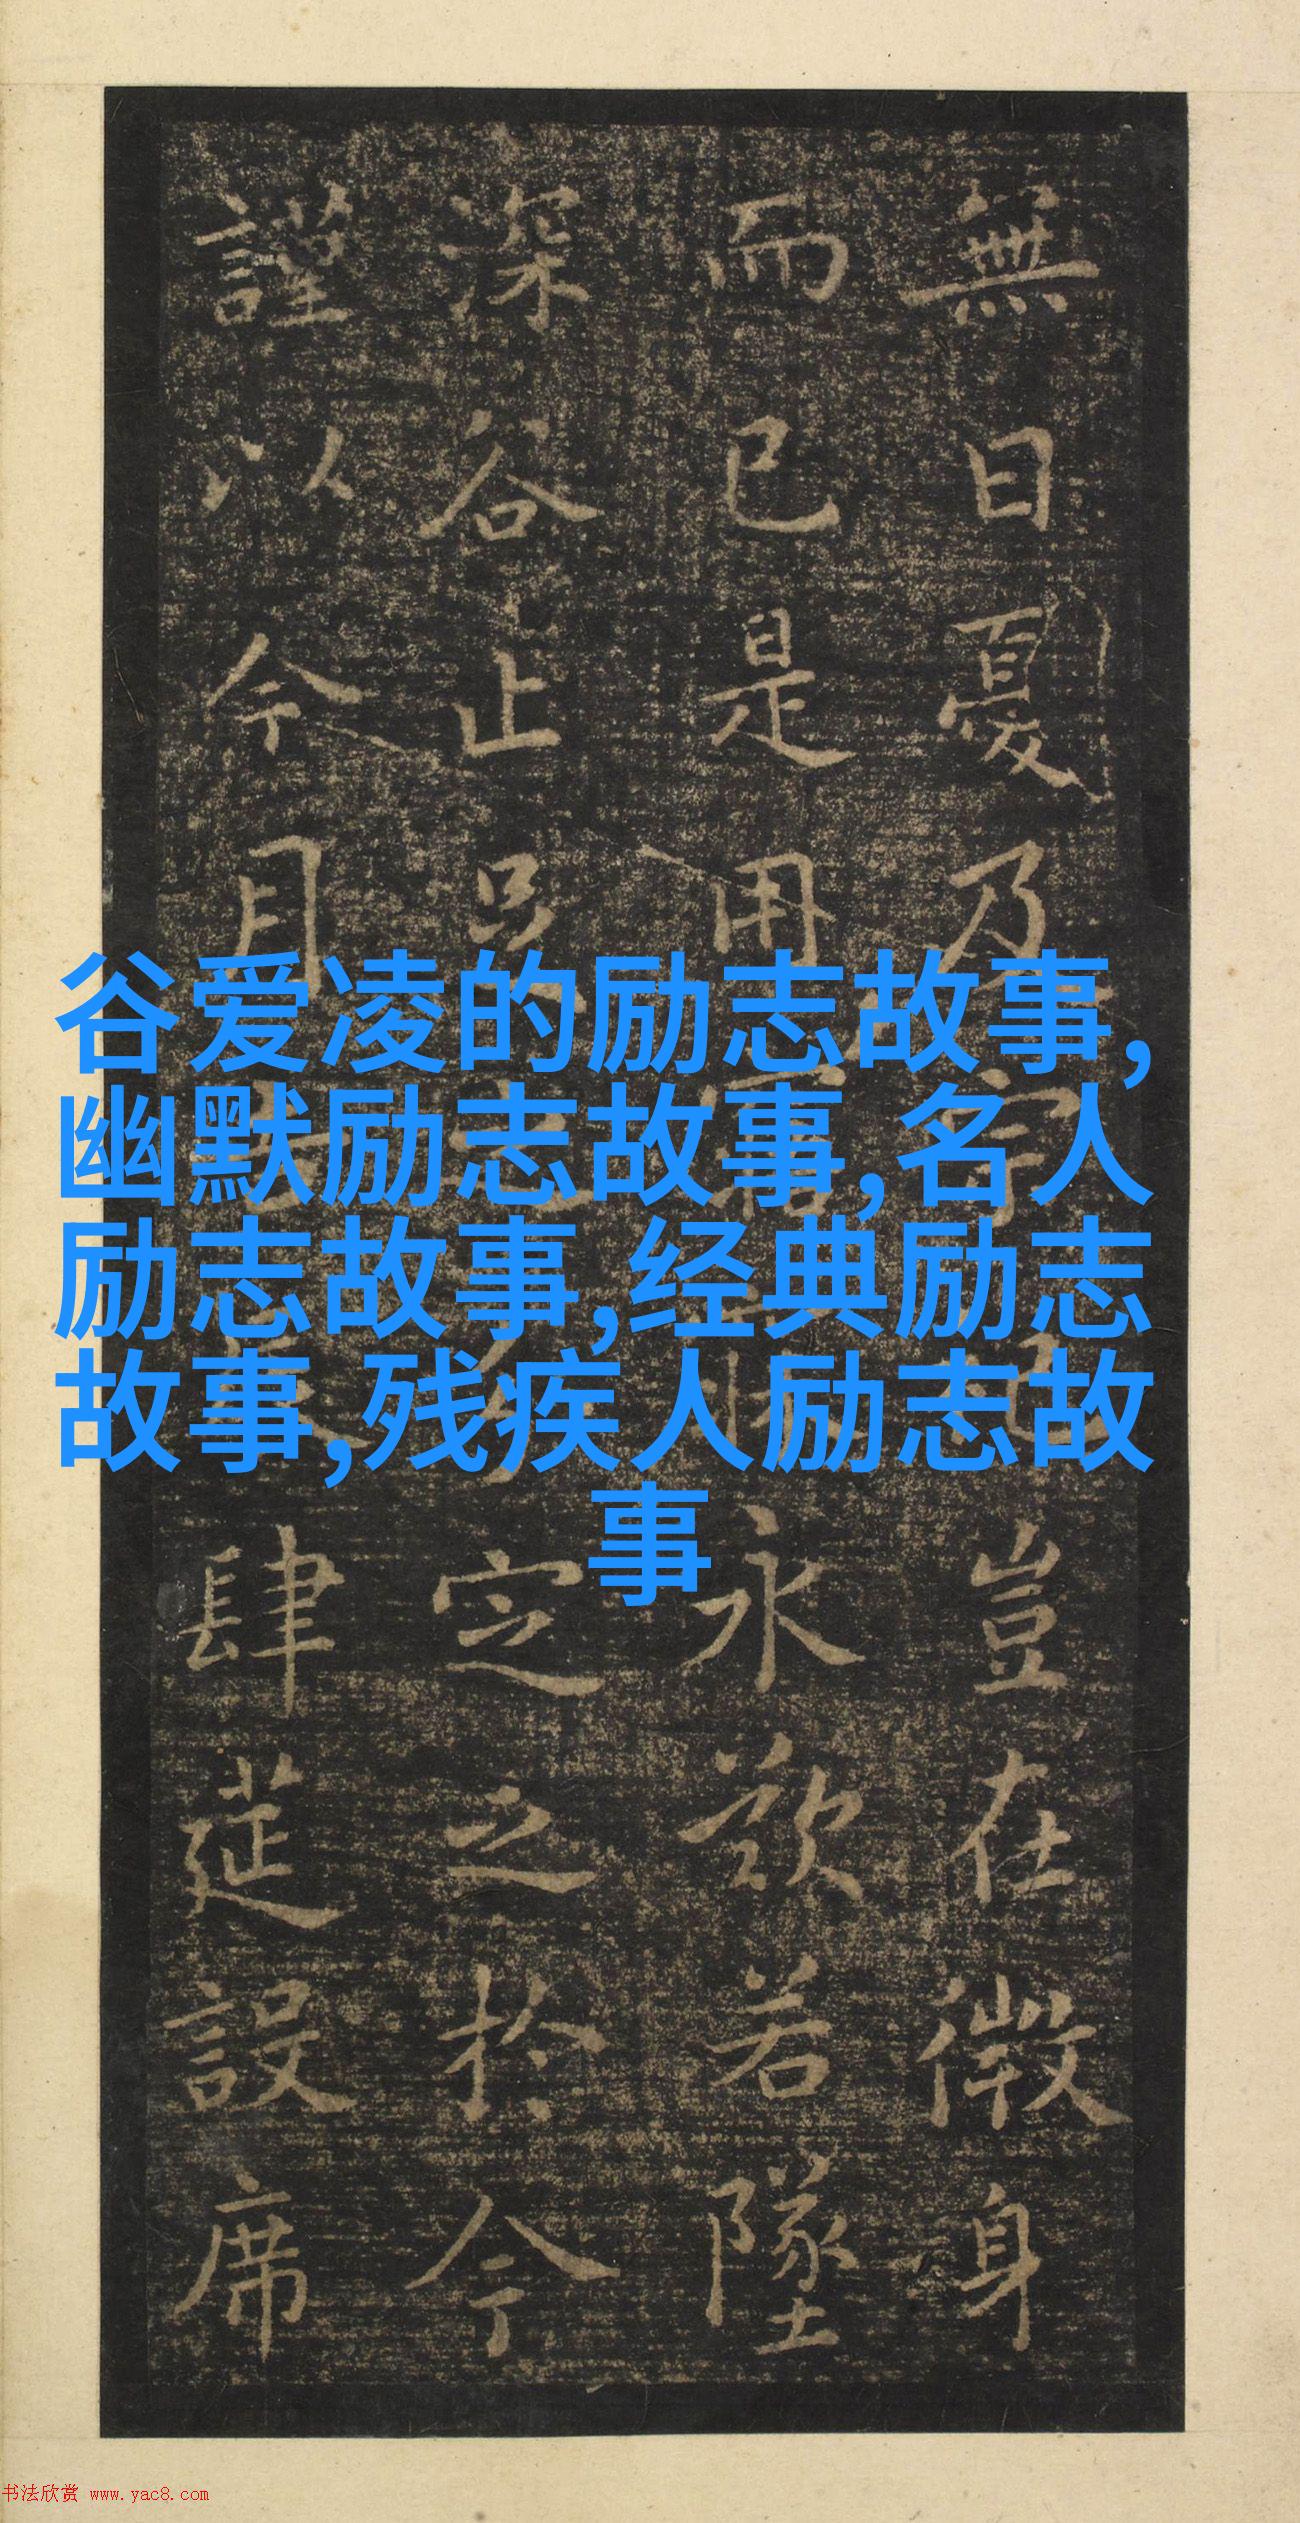 無日憂乃豈在微身
而已是用永歎若墜
深谷止定之於今
謹以今月肆筵設席
谷爱凌的励志故事,
幽默励志故事,名人
励志故事,经典励志
故事,残疾人励志故
事
书法欣赏 www.yac8.com